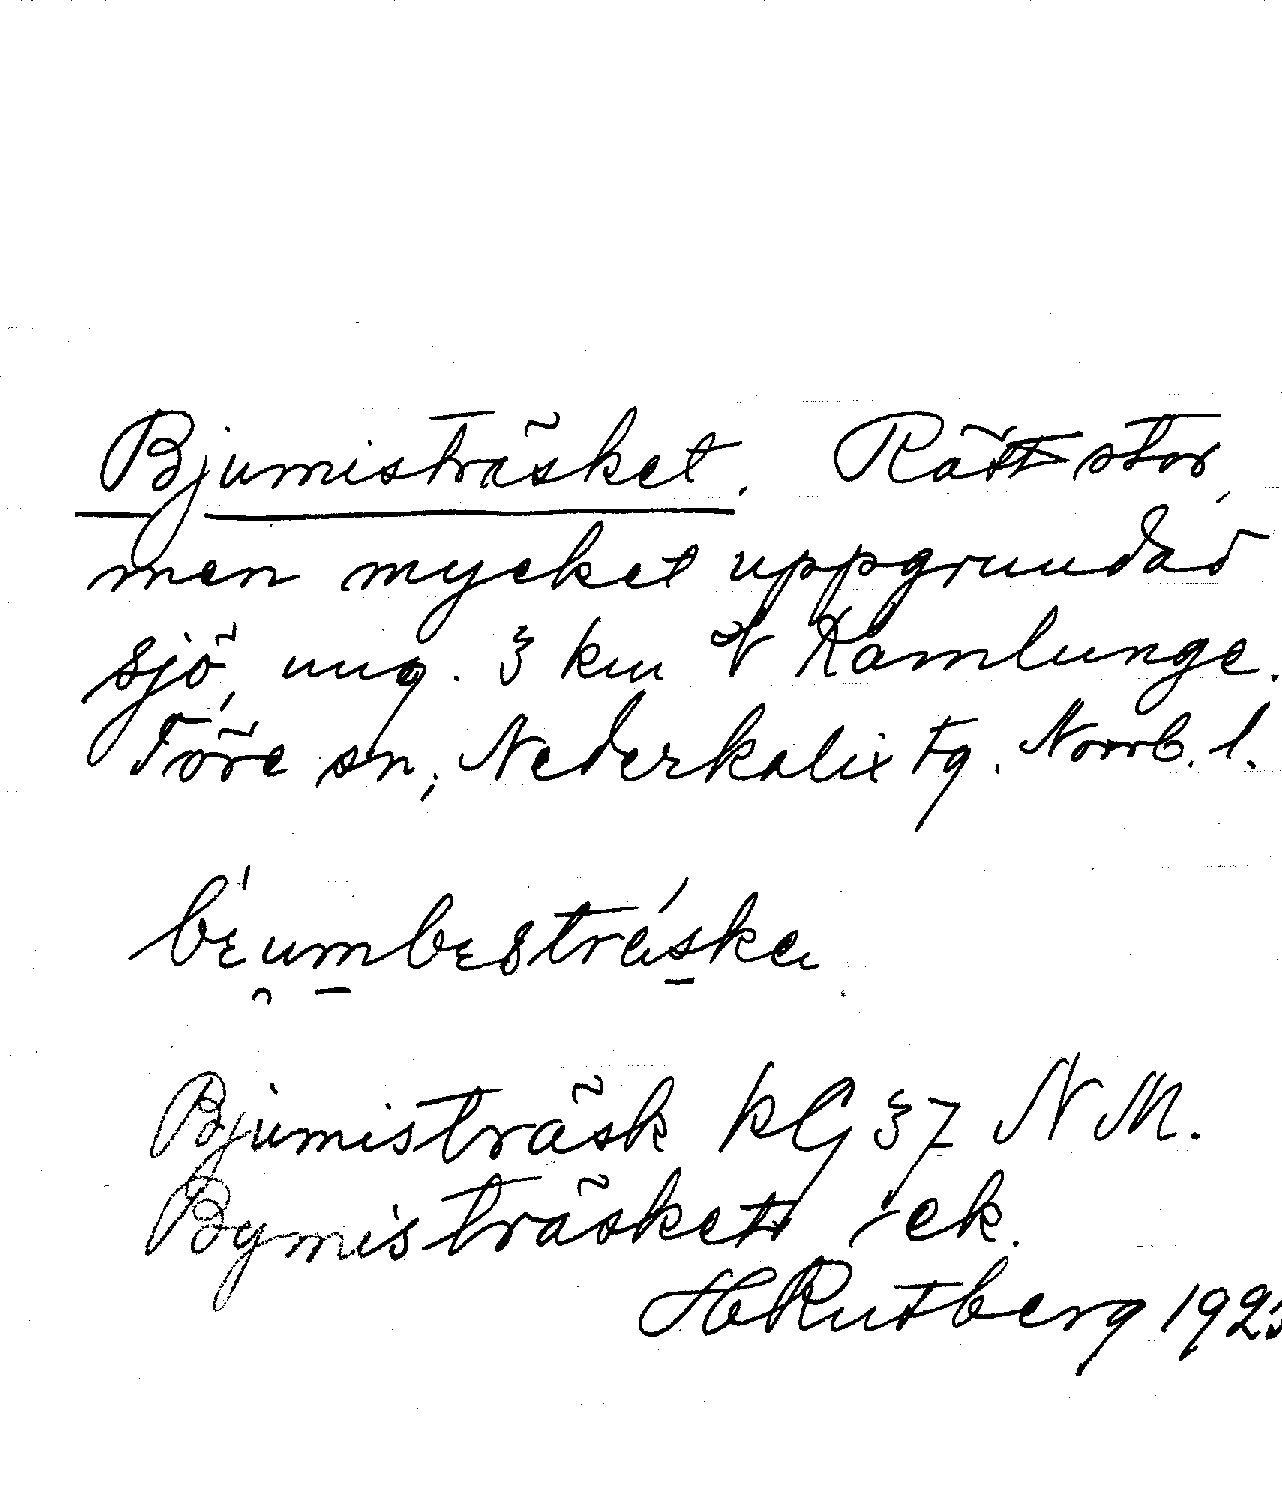 Bjumisträsket. Rätt stor,
men mycket uppgrundad
sjö, ung. 3 km N Kamlunge.
Töre sn, Nederkalix tg. Norrb. l.
Bjumisträsk kG 37 NM.
Bymisträsket ek.
H Rutberg